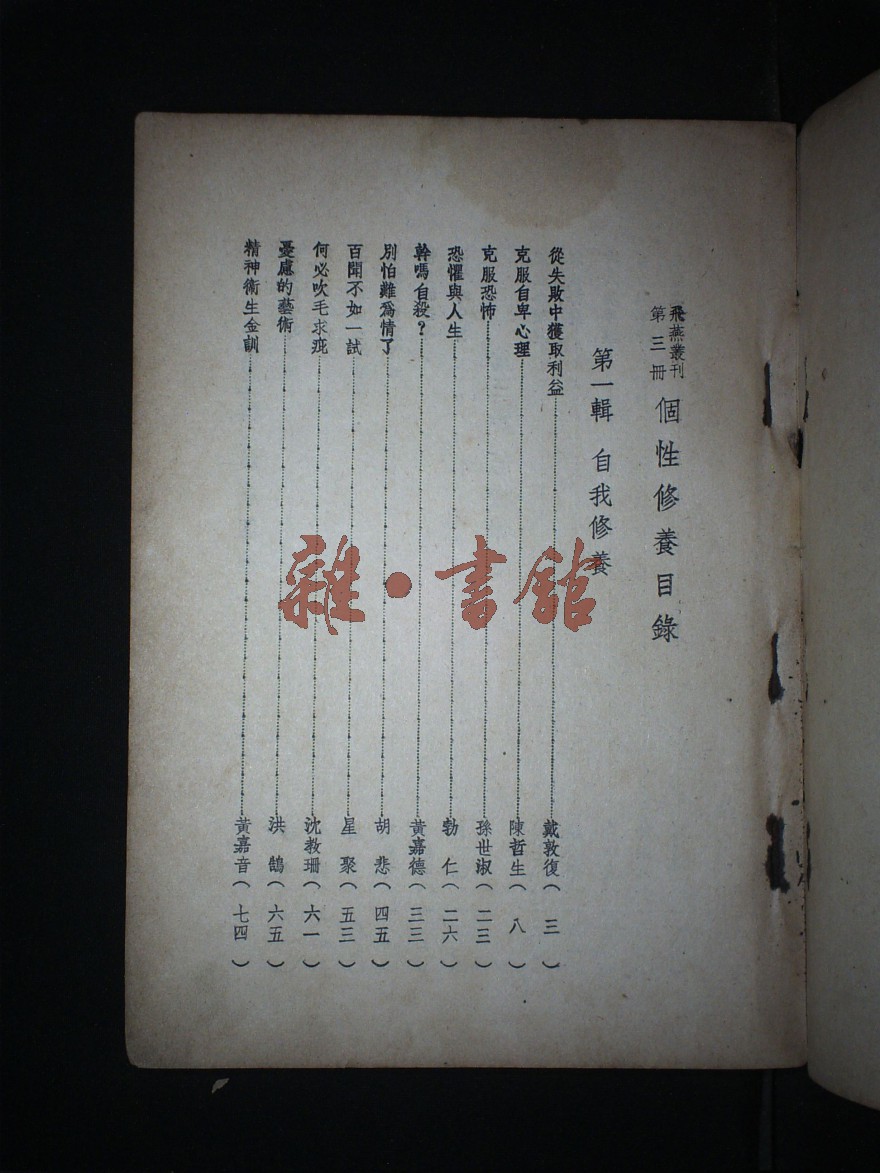 飛燕叢刊
第三冊
個性修養目錄
第一輯 自我修養
從失敗中獲取利益 戴敦復(三)
克服自卑心理 陳哲生(八)
克服恐怖 孫世淑(二三)
恐懼與人生 勃仁(二六)
幹嗎自殺? 黃嘉德(三三)
別怕難爲情了 胡悲(四五)
百聞不如一試 星聚(五三)
何必吹毛求疵 沈教珊(六一)
憂慮的藝術 洪鵠(六五)
精神衛生金訓 黃嘉音(七四)
雜·書舘